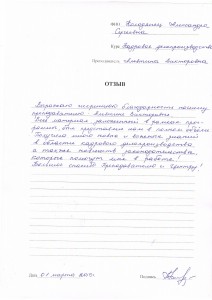 ФИО Колодяжец Александра
Сергеевна
Курс Кадровое делопроизводство
Преподаватель Альбина Викторовна
ОТЗЫВ
Выражаю искреннюю благодарность нашему
преподавателю Альбине Викторовне.
Весь материал заложенный в рамках про-
граммы, был представлен нам в полном объёме.
Получила много новых и важных знаний
в области кадрового делопроизводства
а также новшеств законодательства,
которые помогут мне в работе!
Большое спасибо Преподавателю и Центру!
Дата 01 марта
Подпись